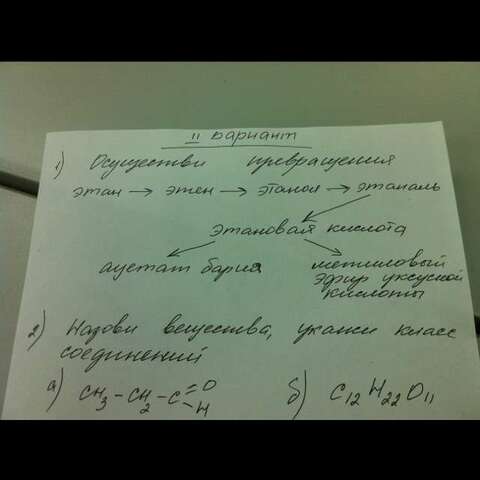 II вариант
1) Осуществи превращения
этан → этен → этанол → этаналь
этановая кислота
ацетат бария
метиловый эфир уксусной кислоты
2) Назови вещества, укажи класс
соединений
а) CH3-CH2-C=O
-H
б) C12H22O11